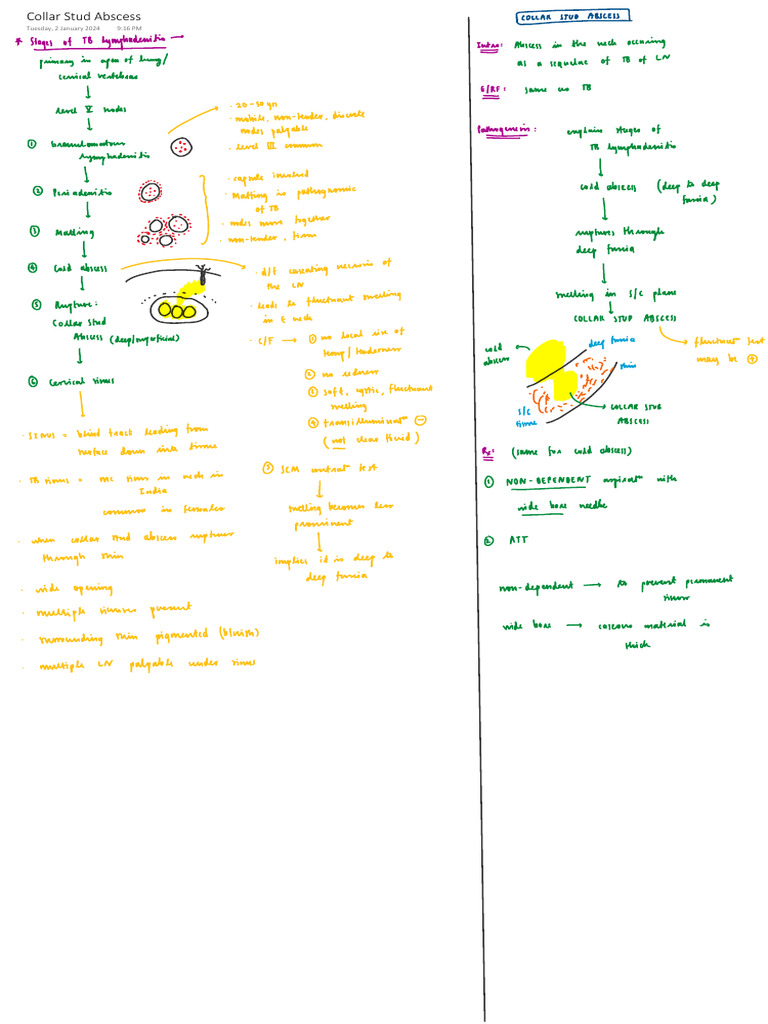 Collar Stud Abscess
Tuesday, 2 January 2024 9:16 PM
* Stages of TB lymphadenitis →
primary in apex of lung/
cervical vertebrae
level V nodes
① Granulomatous
lymphadenitis
· 20-50 yrs
· mobile, non-tender, discrete
nodes palpable
· level III common
② Periadenitis
③ Matting
· capsule involved
· Matting is pathognomic
of TB
· nodes move together
· non-tender, firm
④ Cold abscess
⑤ Rupture:
Collar Stud
Abscess (deep/superficial)
· d/t caseating necrosis of
the LN
· leads to fluctuant swelling
in neck
· C/F → ① no local rise of
temp/tenderness
② no redness
③ soft, cystic, fluctuant
swelling
④ transillumination ⊖
(not clear fluid)
⑤ SCM contract test
swelling becomes less
prominent
implies it is deep to
deep fascia
⑥ Cervical sinus
· SINUS = blind tract leading from
surface down into tissue
· TB sinus = mc sinus in neck in
India
common in females
· when collar stud abscess ruptures
through skin
· wide opening
· multiple sinuses present
· surrounding skin pigmented (bluish)
· multiple LN palpable under sinus
COLLAR STUD ABSCESS
Intro: Abscess in the neck occuring
as a sequelae of TB of LN
E/RF: same as TB
Pathogenesis: explain stages of
TB lymphadenitis
cold abscess (deep to deep
fascia)
ruptures through
deep fascia
swelling in S/C plane
COLLAR STUD ABSCESS
fluctuant test
may be ⊕
cold
abscess
deep fascia
skin
S/C
tissue
COLLAR STUD
ABSCESS
Rx: (same for cold abscess)
① NON-DEPENDENT aspiratn with
wide bore needle
② ATT
non-dependent → to prevent permanent
sinus
wide bore → caseous material is
thick